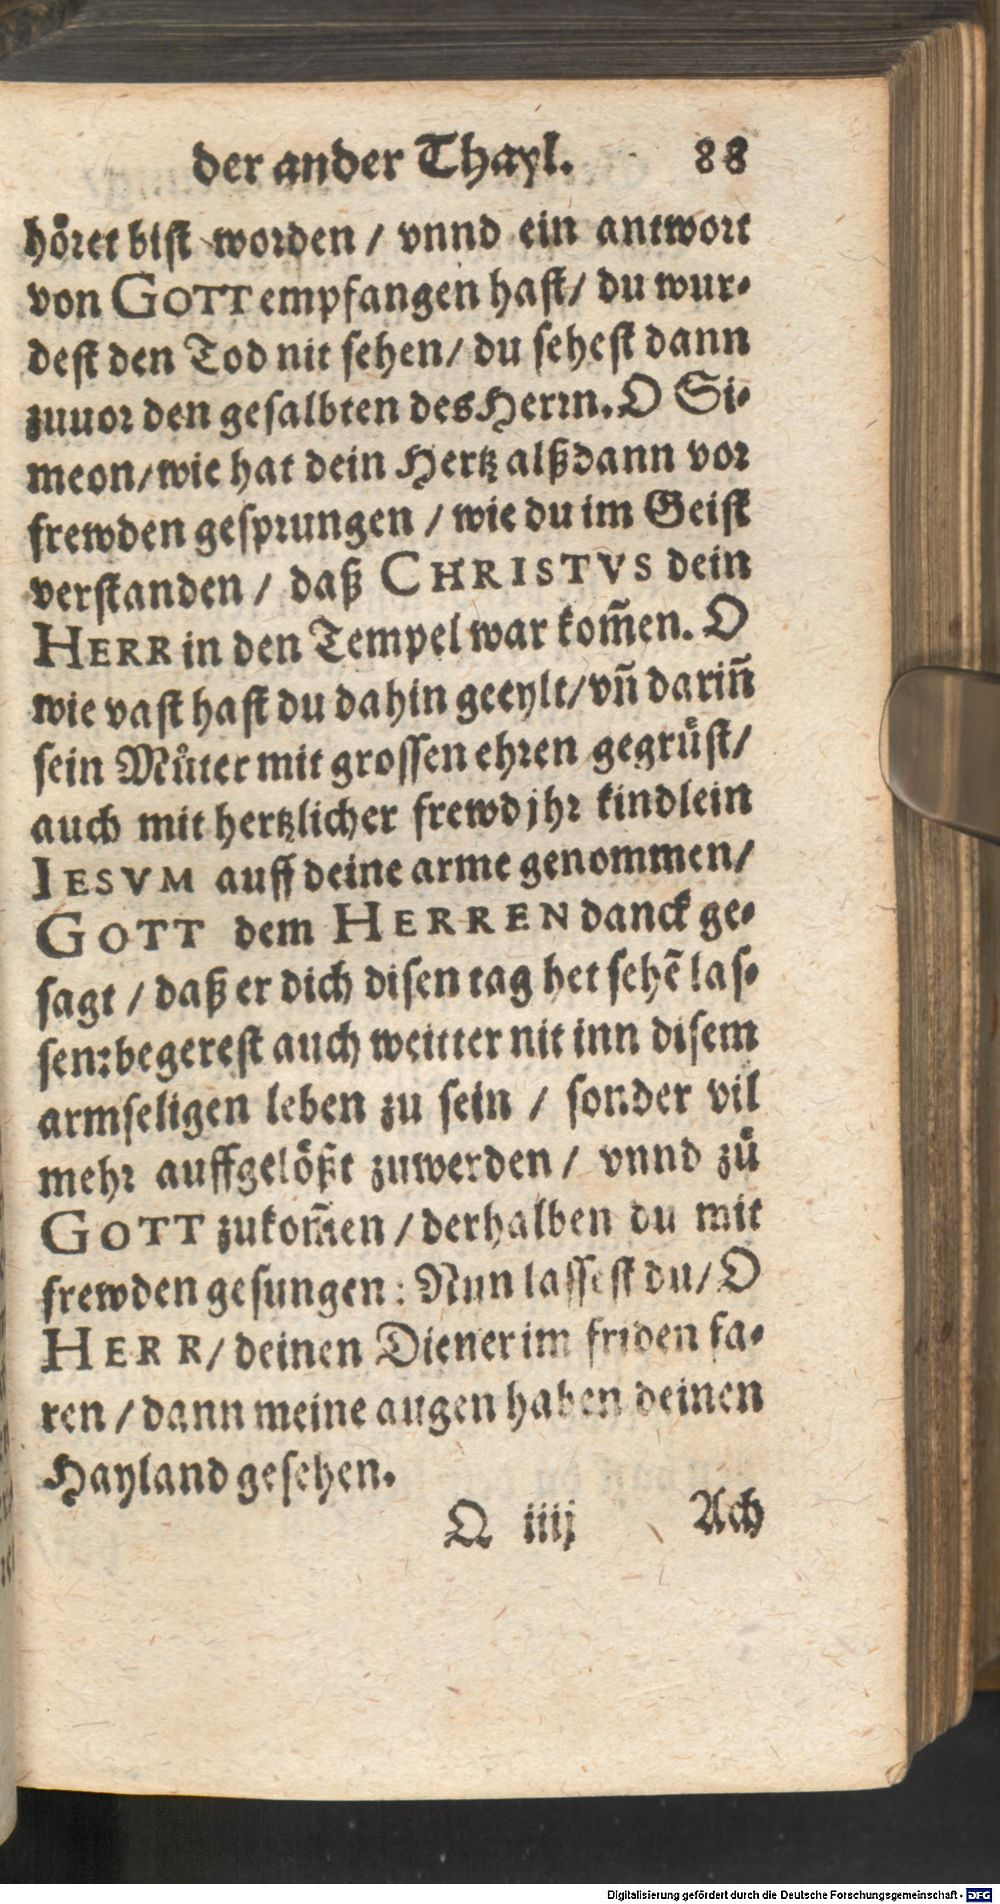 der ander Thayl. 88
hoͤret bist worden / vnnd ein antwort
von GOTT empfangen hast / du wur-
dest den Tod nit sehen / du sehest dann
zuuor den gesalbten des Herrn. O Si-
meon / wie hat dein Hertz alßdann vor
frewden gesprungen / wie du im Geist
verstanden / daß CHRISTVS dein
HERR in den Tempel war kom̃en. O
wie vast hast du dahin geeylt / vñ dariñ
sein Muͦter mit grossen ehren gegruͤst /
auch mit hertzlicher frewd jhr kindlein
IESVM auff deine arme genommen /
GOTT dem HERREN danck ge-
sagt / daß er dich disen tag het sehẽ las-
sen: begerest auch weitter nit inn disem
armseligen leben zu sein / sonder vil
mehr auffgeloͤßt zuwerden / vnnd zuͦ
GOTT zukom̃en / derhalben du mit
frewden gesungen: Nun lassest du / O
HERR / deinen Diener im friden fa-
ren / dann meine augen haben deinen
Hayland gesehen.
Q iiij Ach
Digitalisierung gefördert durch die Deutsche Forschungsgemeinschaft - DFG